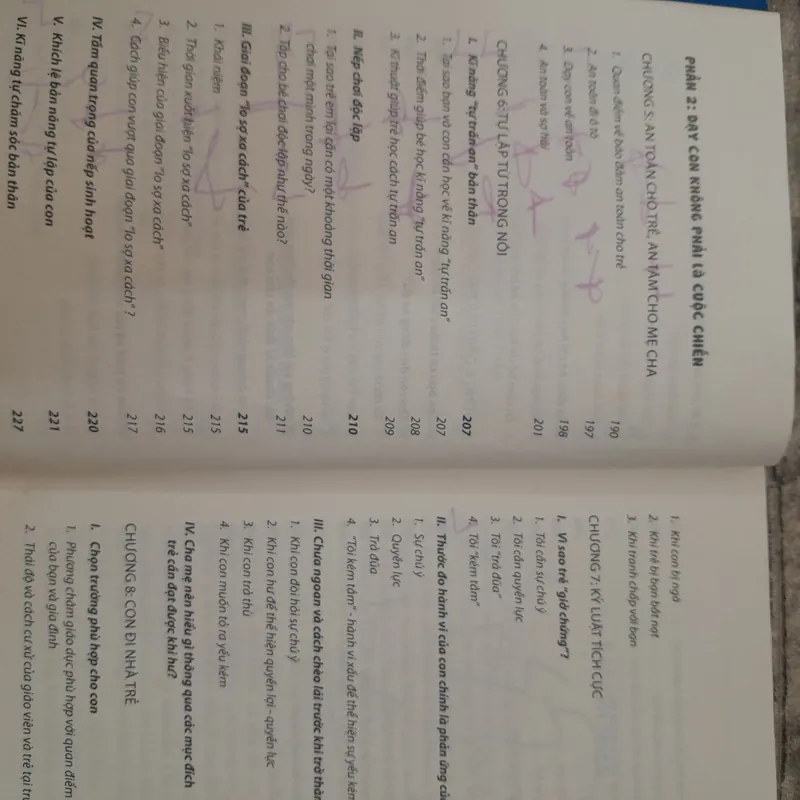 PHẦN 2: DẠY CON KHÔNG PHẢI LÀ CUỘC CHIẾN
CHƯƠNG 5: AN TOÀN CHO TRẺ, AN TÂM CHO MẸ CHA
1. Quan điểm về bảo đảm an toàn cho trẻ 190
2. An toàn đi ô tô 197
3. Dạy con về an toàn 198
4. An toàn và sợ hãi 201
CHƯƠNG 6: TỰ LẬP TỪ TRONG NÔI
I. Kĩ năng "tự trấn an" bản thân 207
1. Tại sao bạn và con cần học về kĩ năng "tự trấn an" 207
2. Thời điểm giúp bé học kĩ năng "tự trấn an" 208
3. Kĩ thuật giúp trẻ học cách tự trấn an 209
II. Nếp chơi độc lập 210
1. Tại sao trẻ em lại cần có một khoảng thời gian
chơi một mình trong ngày? 210
2. Tập cho bé chơi độc lập như thế nào? 211
III. Giai đoạn "lo sợ xa cách" của trẻ 215
1. Khái niệm 215
2. Thời gian xuất hiện "lo sợ xa cách" 215
3. Biểu hiện của giai đoạn "lo sợ xa cách" 216
4. Cách giúp con vượt qua giai đoạn "lo sợ xa cách"? 217
IV. Tầm quan trọng của nếp sinh hoạt 220
V. Khích lệ bản năng tự lập của con 221
VI. Kĩ năng tự chăm sóc bản thân 227
1. Khi con bị ngã
2. Khi trẻ bị bạn bắt nạt
3. Khi tranh chấp với bạn
CHƯƠNG 7: KỶ LUẬT TÍCH CỰC
I. Vì sao trẻ "giở chứng"?
1. Tôi cần sự chú ý
2. Tôi cần quyền lực
3. Tôi "trả đũa"
4. Tôi "kém tắm"
II. Thước đo hành vi của con chính là phản ứng của
1. Sự chú ý
2. Quyền lực
3. Trả đũa
4. "Tôi kém tắm" - hành vi xấu để thể hiện sự yếu kém
III. Chưa ngoan và cách chèo lái trước khi trở thàn
1. Khi con đòi hỏi sự chú ý
2. Khi con hư để thể hiện quyền lợi - quyền lực
3. Khi con trả thù
4. Khi con muốn tỏ ra yếu kém
IV. Cha mẹ nên hiểu gì thông qua các mục đích
trẻ cần đạt được khi hư?
CHƯƠNG 8: CON ĐI NHÀ TRẺ
I. Chọn trường phù hợp cho con
1. Phương châm giáo dục phù hợp với quan điểm
của bạn và gia đình
2. Thái độ và cách cư xử của giáo viên và trẻ tại